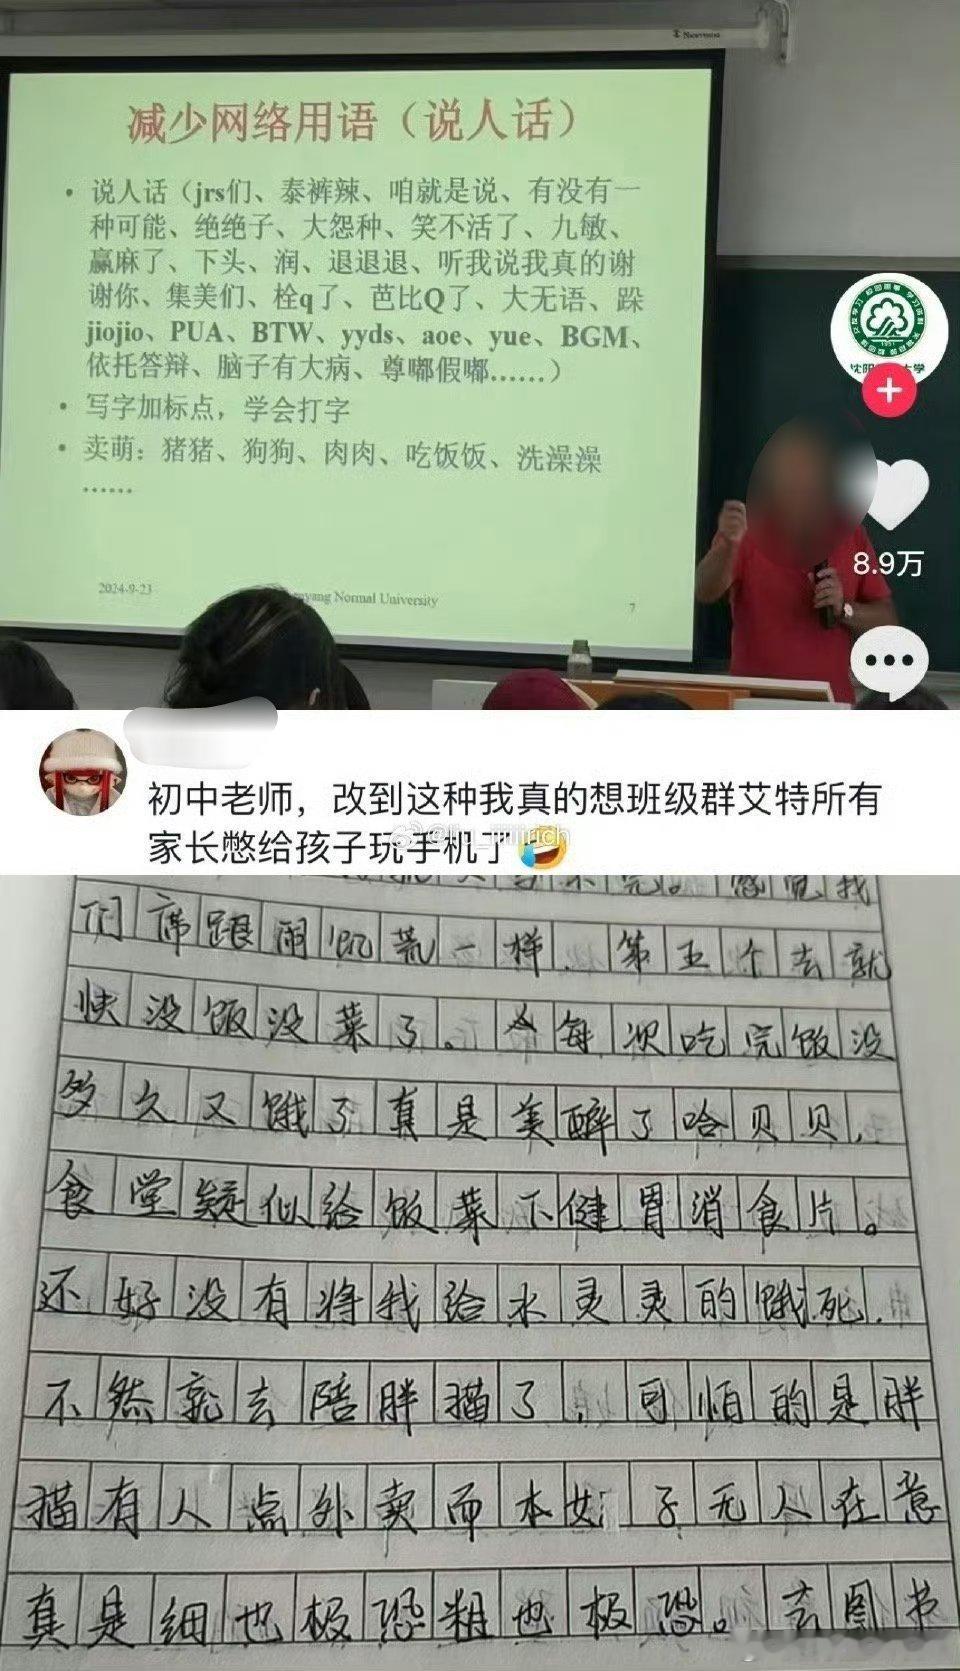 减少网络用语（说人话）
• 说人话（jrs们、泰裤辣、咱就是说、有没有一
种可能、绝绝子、大怨种、笑不活了、九敏、
赢麻了、下头、润、退退退、听我说我真的谢
谢你、集美们、栓q了、芭比Q了、大无语、跺
jiojio、PUA、BTW、yyds、aoe、yue、BGM、
依托答辩、脑子有大病、尊嘟假嘟……）
• 写字加标点，学会打字
• 卖萌：猪猪、狗狗、肉肉、吃饭饭、洗澡澡
……
2024-9-23
yang Normal University
7
8.9万
初中老师，改到这种我真的想班级群艾特所有
家长憋给孩子玩手机了🤣
感觉我
们 席跟闹饥荒一样，第五个去就
快没饭没菜了。每次吃完饭没
多久又饿了真是美醉了哈贝贝，
食堂疑似给饭菜下健胃消食片。
还好没有将我给水灵灵的饿死，
不然就去陪胖猫了，可怕的是胖
猫有人点外卖而本女子无人在意
真是细也极恐粗也极恐。去图书